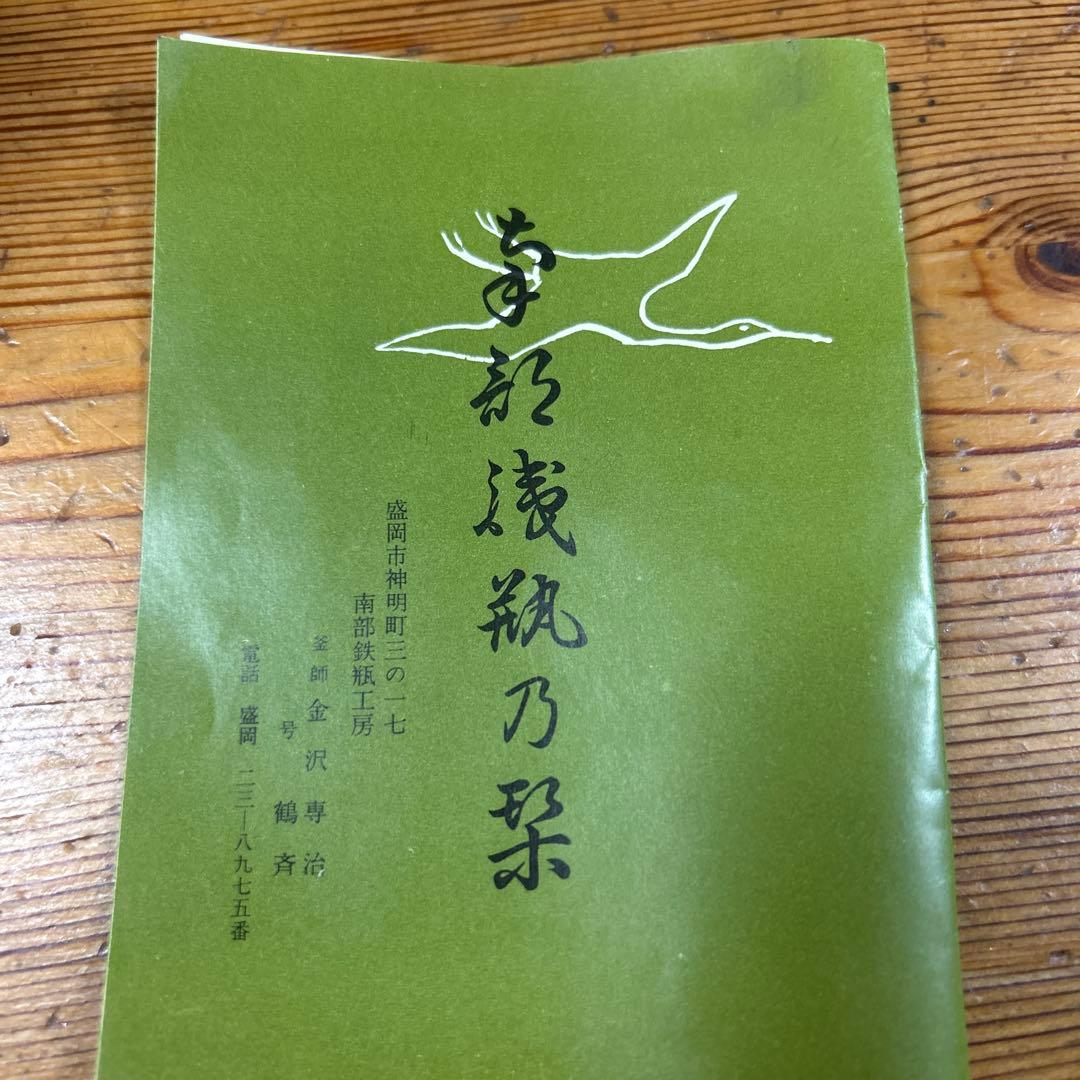 南部鉄瓶乃栞
盛岡市神明町三の一七
南部鉄瓶工房
釜師 金沢専治
号 鶴斉
電話 盛岡 二三―八九七五番